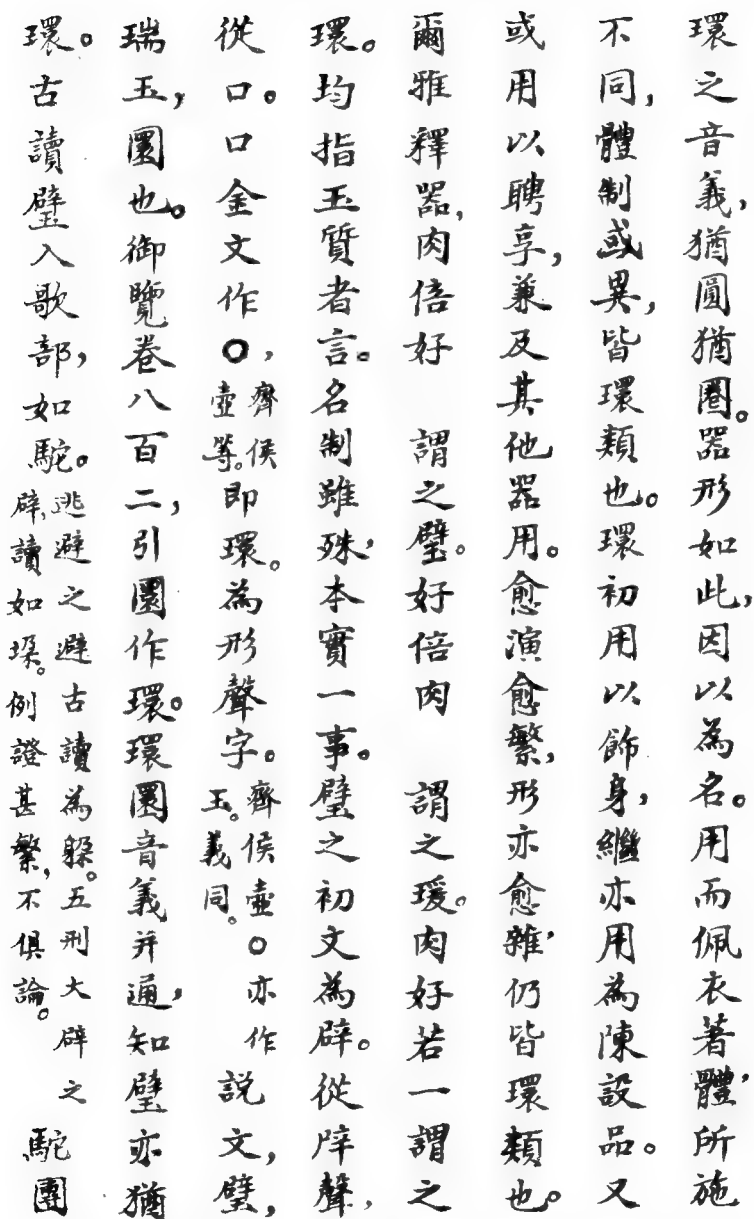 環之音義,猶圓猶圈。器形如此,因以為名。用而佩衣著體,所施
不同,體制或異,皆環類也。環初用以飾身,繼亦用為陳設品。又
或用以聘享,兼及其他器用。愈演愈繁,形亦愈雜,仍皆環類也。
爾雅釋器,肉倍好 謂之璧。好倍肉 謂之瑗。肉好若一謂之
環。均指玉質者言。名制雖殊,本實一事。璧之初文為辟。從聲,
從口。口金文作〇,齊侯壺等。即環。為形聲字。齊侯壺〇亦作玉。義同。說文,璧,
瑞玉,圜也。御覽卷八百二,引圜作環。環圜音義并通,知璧亦猶
環。古讀璧入歌部,如駝。逃避之避古讀為躲。五刑大辟之辟,讀如垛。例證甚繁,不俱論。駝團